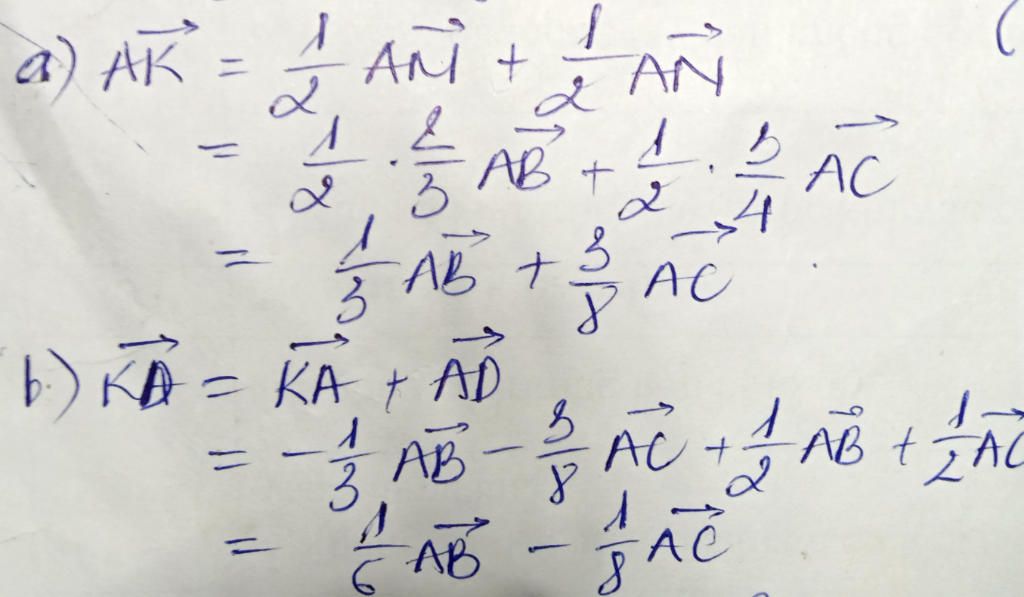 a) $\overrightarrow{AK} = \frac{1}{2} \overrightarrow{AM} + \frac{1}{2} \overrightarrow{AN}$
$= \frac{1}{2} \cdot \frac{2}{3} \overrightarrow{AB} + \frac{1}{2} \cdot \frac{3}{4} \overrightarrow{AC}$
$= \frac{1}{3} \overrightarrow{AB} + \frac{3}{8} \overrightarrow{AC}$
b) $\overrightarrow{KD} = \overrightarrow{KA} + \overrightarrow{AD}$
$= -\frac{1}{3} \overrightarrow{AB} - \frac{3}{8} \overrightarrow{AC} + \frac{1}{2} \overrightarrow{AB} + \frac{1}{2} \overrightarrow{AC}$
$= \frac{1}{6} \overrightarrow{AB} - \frac{1}{8} \overrightarrow{AC}$